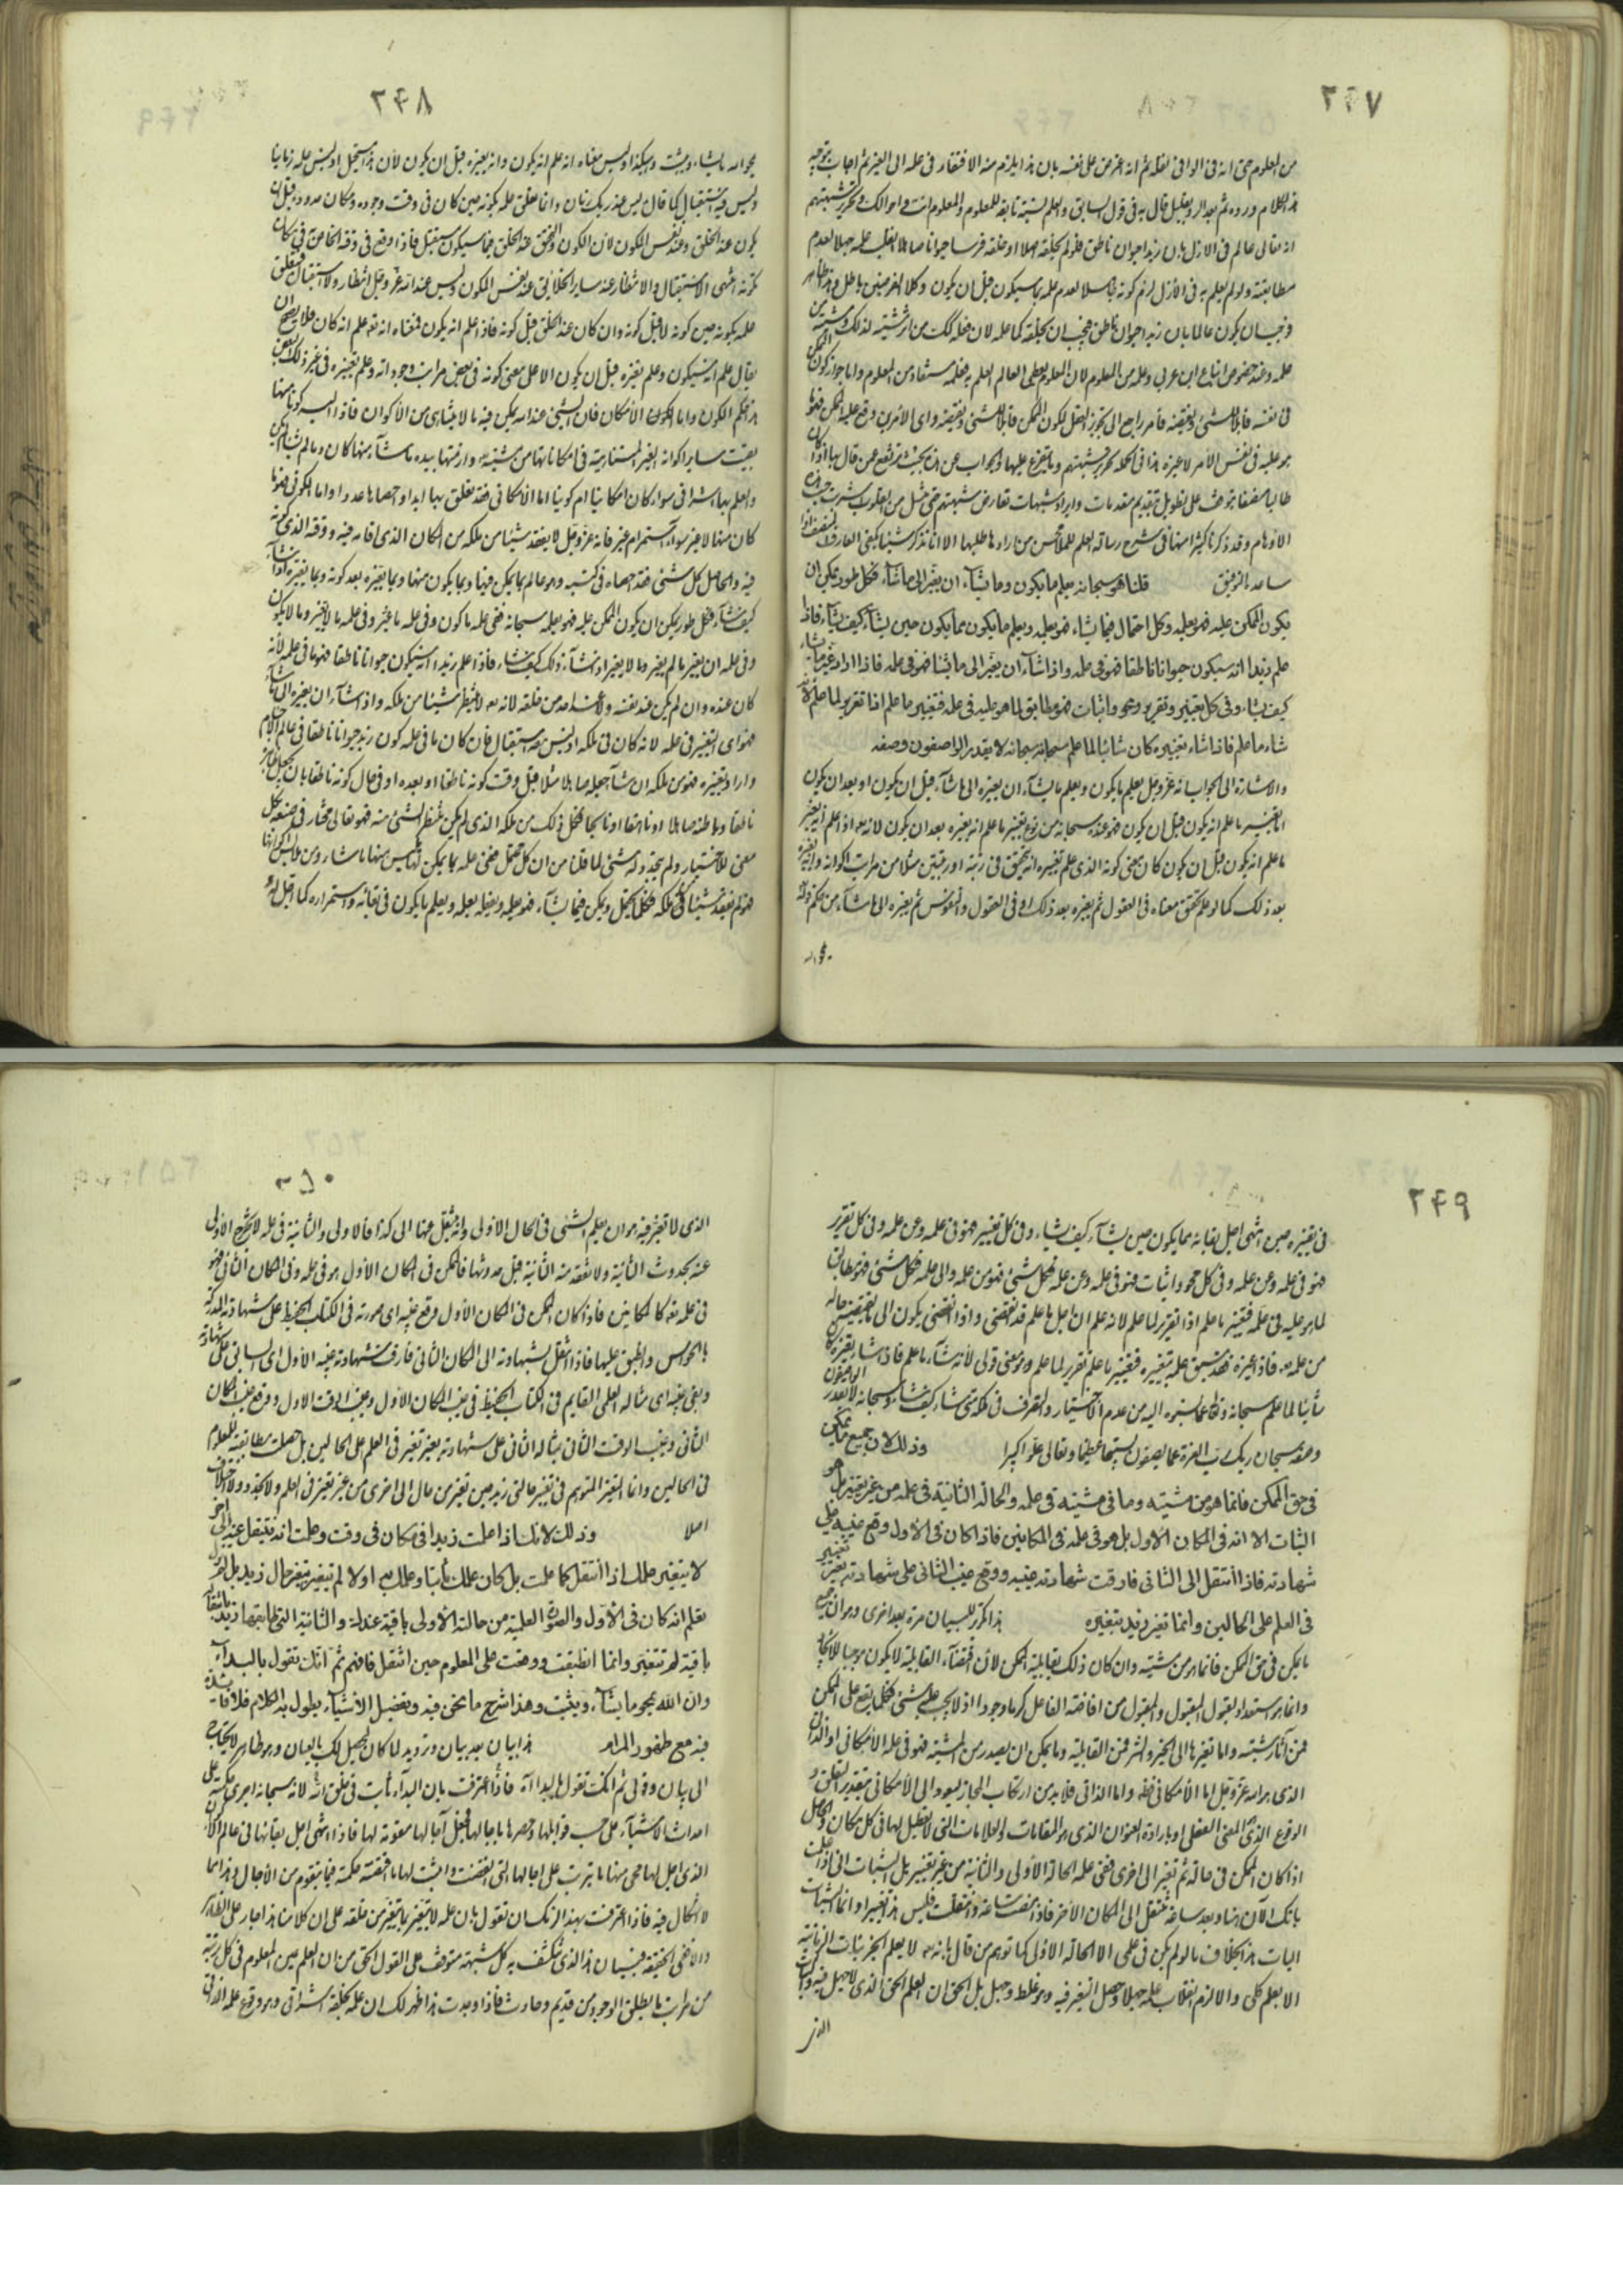 ٢٤٧
من المعلوم حتى انه فى الوافى نقله ثم انه اعترض على نفسه بان هذا يلزم منه الافتقار فى علمه الى الغير ثم اجاب بتوجيه
هذا الكلام ورده ثم بعد اقليل قال به فى قول السابق والعلم نسبة تابعة للمعلوم والمعلوم انت واحوالك وتحرير شبهتهم
انه تعالى عالم فى الازل بان زيدا حيوان ناطق فلو لم يخلقه اصلا او خلقه فرسا حيوانا صاهلا انقلب علمه جهلا لعدم
مطابقته ولو لم يعلم به فى الأزل لزم كونه جاهلا لعدم علمه بما سيكون قبل ان يكون وكلا الفرضين باطل
فوجب ان يكون عالما بان زيدا حيوان ناطق فيجب ان يخلقه كما علمه
علمه وعند خصوص اتباع ابن عربى وعلمه من المعلوم لان المعلوم يعطى العالم العلم به فعلمه مستفاد من المعلوم واما جواز كون الممكن
فى نفسه قابلا للشئ ونقيضه فأمر راجع الى تجويز العقل لكون الممكن قابلا للشئ ونقيضه واى الأمرين وقع عليه الممكن فهو ما
هو عليه فى نفس الأمر لا غيره هذا فى الجملة تحرير شبهتهم وما يتفرع عليها والجواب عن هذا بحيث ترتفع عمن قال بها اذا كان
طالبا منصفا يتوقف على تطويل بتقديم مقدمات وايراد شبهات تعارض شبهتهم حتى
الاوهام وقد ذكرنا كثيرا منها فى شرح رسالة العلم للملا محسن من ارادها طلبها الا انا نذكر شيئا يكفى العارف المنصف اذا
ساعده التوفيق قلنا هو سبحانه يعلم ما يكون وما يشآء ان يغير الى ما شآء فكل طور يمكن ان
يكون الممكن عليه فهو يعلمه وكل احتمال فيما يشاء فهو يعلمه ويعلم ما يكون مما يكون حين يشآء كيف يشآء فاذا
علم زيدا انه سيكون حيوانا ناطقا فهو فى علمه واذا شآء ان يغير الى ما يشا فهو فى علمه فاذا اراد غير ما يشاء
كيف يشاء وفى كل تغيير وتقرير ومحو واثبات هو مطابق لما هو عليه فى علمه فتغيير ما علم اذا تقرير لما علم لأنه
شاء ما علم فاذا شاء تغييره كان شائيا لما علم سبحانه سبحانه لا يقدر الواصفون وصفه
والاشارة الى الجواب انه عز وجل يعلم ما يكون ويعلم ما يشآء ان يغيره الى ما شآء قبل ان يكون او بعد ان يكون
اما تغيير ما علم انه يكون قبل ان يكون فهو عنده سبحانه من نوع تغيير ما علم انه يغيره بعد ان يكون لانه تعه اذا علم انه يغير
ما علم انه يكون قبل ان يكون كان معنى كونه الذى علم تغييره انه يتحقق فى رتبة او رتبتين مثلا من مراتب اكوانه وانه يغيره
بعد ذلك كما لو علم تحقق معناه فى العقول ثم يغيره بعد ذلك او فى العقول والنفوس ثم يغيره الى ما شآء من حكم قوله
يمحو الله
٢٤٨
يمحو الله ما يشاء ويثبت وهكذا وليس معناه انه علم انه يكون وانه يغيره قبل ان يكون لأن هذا مستحيل اذ ليس علمه زمانيا
وليس فيه استقبال كما قال ليس عند ربك زمان وانما تعلق علمه بكونه حين كان فى وقت وجوده ومكان حدوده قبل ان
يكون عند الخلق وعند نفس المكون لأن المكون والخلق عند الخلق مما سيكون مستقبل فاذا وقع فى وقته الخاص فى مكان
كونه انتهى الاستقبال والانتظار عند ساير الخلائق عند نفس المكون وليس عند الله عز وجل انتظار ولا استقبال فتعلق
علمه بكونه حين كونه لا قبل كونه وان كان عند الخلق قبل كونه فاذا علم انه يكون فمعناه انه تعه علم انه كان فلا يصح ان
يقال علم انه سيكون وعلم تغييره قبل ان يكون الا على معنى كونه فى بعض مراتب وجوداته وعلم تغييره فى غير ذلك البعض
هذا حكم الكون واما الامكان فان الشئ عند الله يمكن فيه ما لا يتناهى من الأكوان فاذا البسه كونا منها
بقيت ساير اكوانه الغير المتناهية فى امكاناتها من مشيته وازمتها بيده ما شآء منها كان وما لم يشأ لم يكن
والعلم بها اشراقى سواء كان امكانيا ام كونيا اما الامكانى فقد تعلق بها ابدا واحصاها عددا واما الكونى فهو ما
كان منها لا غير سوآء استمر ام غير فانه عز وجل لا يفقد شيئا من ملكه من المكان الذى اقامه فيه ووقته الذى كونه
فيه والحاصل كل شئ فقد احصاه فى كتبه وهو عالم بما يمكن فيها وبما يكون منها وبما يغيره بعد كونه وبما يغيره اذا شآء
كيف شآء فكل طور يمكن ان يكون الممكن عليه فهو يعلمه سبحانه ففى علمه ما كون وفى علمه ما غير وفى علمه ما لا يغير وما لا يكون
وفى علمه ان يغير ما لم يغير وما لا يغير اذا شآء وذلك كيف شاء فاذا علم زيدا انه سيكون حيوانا ناطقا فهو ما فى علمه لأنه
كان عنده وان لم يكن عند نفسه ولا عند احد من خلقه لانه تعه لا ينتظر شيئا من ملكه واذا شآء ان يغيره الى ما شآء
فهو اى التغيير فى علمه لانه كان فى ملكه اذ ليس عنده استقبال فان كان ما فى علمه كون زيد حيوانا ناطقا فى عالم الاجسام
واراد تغييره فهو من ملكه ان شآء جعله صاهلا مثلا قبل وقت كونه ناطقا او بعده او فى حال كونه ناطقا بان
ناطقا وباطنه صاهلا او ناهقا او نابحا فكل ذلك من ملكه الذى لم يكن منتظرا لشئ منه فهو تعالى مختار فى صنعه بكل
معنى للاختيار ولم يتجدد له شئ لما قلنا من ان كل محتمل ففى علمه بما يمكن
فلم يفقد شيئا من ملكه فكل محتمل ويمكن فيما يشآء فهو يعلمه ويفعله بعلمه ويعلم ما يكون فى بقائه واستمراره كما قبل
٢٤٩
فى تغييره حين انتهى اجل بقائه مما يكون حين يشآء كيف يشاء وفى كل تغيير هو فى علمه وعن علمه وفى كل تقرير
هو فى علمه وعن علمه وفى كل محو واثبات هو فى علمه وعن علمه فكل شئ فهو من علمه والى علمه فكل شئ فهو مطابق
لما هو عليه فى علمه فتغيير ما علم اذا تقرير لما علم لانه علم ان اجل ما علم قد انقضى واذا انقضى يكون الى ما يقتضيه حاله
من علمه تعه فاذا غيره فقد سبق علمه بتغييره فتغيير ما علم تقرير لما علم وهو معنى قولى لأنه شآء ما علم فاذا شاء تغييره كان
شائيا لما علم سبحانه وتعالى عما نسبوه اليه من عدم الاختيار والتصرف فى ملكه متى شاء كيف شاء سبحانه لا يقدر الواصفون
وصفه سبحان ربك رب العزة عما يصفون تسبيحا عظيما وتعالى علوا كبيرا وذلك لان جميع ما يمكن
فى حق الممكن فانما هو من مشيته وما فى مشيته فى علمه والحالة الثانية فى علمه من غير تغيير بل هو
الثبات الا انه فى المكان الاول بل هو فى علمه فى المكانين فاذا كان فى الاول وقع عينه على
شهادته فاذا انتقل الى الثانى فارقت شهادته عينيه ووقع عينه الثانى على شهادته بغير تغيير
فى العلم على الحالين وانما تغير زيد بتغييره هذا تكرير للبيان مرة بعد اخرى وهو ان جميع
ما يمكن فى حق الممكن فانما هو من مشيته وان كان ذلك بقابلية الممكن لأن اقتضآء القابلية لا يكون موجبا للايجاد
وانما هو استعداد لقبول المقبول والمقبول من افاضة الفاعل كرما وجودا اذ لا يجب عليه شئ فكلما يقع على الممكن
فمن آثار مشيته واما تغيرها الى الخير والشر فمن القابلية وما يمكن ان يصدر من المشية فهو فى علمه الامكانى او الذاتى
الذى هو الله عز وجل اما الأمكانى فظاهر واما الذاتى فلابد من ارتكاب المجاز ليعود الى الأمكانى بتقدير التعلق و
الوقوع الذى هو المعنى الفعلى او بارادة العنوان الذى هو المقامات والعلامات التى لا تعطيل لها فى كل مكان والحاصل
اذا كان الممكن فى حالة ثم تغير الى اخرى ففى علمه الحالة الأولى والثانية من غير تغيير بل الثبات
بانك الآن هنا وبعد ساعة تنتقل الى المكان الآخر فاذا مضت ساعة وانتقلت فليس هذا تغييرا وانما الثبات
الثبات هذا بخلاف ما لو لم يكن فى علمى الا الحالة الاولى كما توهم من قال بانه تعه لا يعلم الجزئيات الزمانية
الا بعلم كلى والا لزم انقلاب علمه جهلا وحصل التغير فيه وهو غلط وجهل بل الحق ان العلم الحق الذى لا جهل فيه والثبات
الذى
٢٥٠
الذى لا تغير فيه هو ان يعلم الشئ فى الحال الاولى وانه ينتقل عنها الى كذا فالاولى والثانية فى علمه لا تخرج الأولى
عنه بحدوث الثانية ولا تفقد منه الثانية قبل حدوثها فالممكن فى المكان الأول هو فى علمه وفى المكان الثانى هو
فى علمه تعه كالمكانين فاذا كان الممكن فى المكان الأول وقع غيبه اى صورته فى الكتاب الحفيظ على شهادته المدركة
بالحواس وانطبق عليها فاذا انتقل بشهادته الى المكان الثانى فارقت شهادته غيبه الأول اى السابق على شهادته
وبقى غيبه اى مثاله العلمى القايم فى الكتاب الحفيظ فى غيب المكان الأول وغيب الوقت الاول ووقع غيب المكان
الثانى وغيب الوقت الثانى بمثاله الثانى على شهادته بغير تغير فى العلم على الحالين بل حصلت مطابقة المعلوم
فى الحالين وانما التغير المتوهم فى تغير حالتى زيد حين تغير من حال الى اخرى من غير تغير فى العلم ولا تجدد ولا اختلاف
اصلا وذلك لانك اذا علمت زيدا فى مكان فى وقت وعلمت انه ينتقل عنه الى اخر
لا يتغير علمك اذا انتقل كما علمت بل كان علمك ثابتا وعلمك به اولا لم يتغير بتغير حال زيد بل
تعلم انه كان فى الأول والصورة العلمية من حالته الأولى باقية عندك والثانية التى طابقتها
باقية لم تتغير وانما انطبقت ووقعت على المعلوم حين انتقل فافهم ثم انك تقول بالبدآء
وان الله يمحو ما يشآء ويثبت وهذا شرح ما نحن فيه وتفصيل الأشيآء يطول به الكلام فلا فايدة
فيه مع ظهور المرام هذا بيان بعد بيان وترديد لما كان ليحصل لك بالعيان وهو ظاهر لا يحتاج
الى بيان وقولى ثم انك تقول بالبدآء فاذا اعترفت بان البدآء ثابت فى خلق الله لانه سبحانه اجرى حكمته على
احداث الاشيآء على حسب قوابلها وحصرها باجالها فجعل آجالها مقومة لها فاذا انتهى اجل بقائها فى عالم الاكوان
الذى اجل لها محى منها ما يترتب على اجالها التى انقضت واثبت لها ما اقتضته حكمته فيما يتقوم من الاجال وهذا مما
لا اشكال فيه فاذا اعترفت بهذا لزمك ان تقول بان علمه لا يتغير بما يتغير من خلقه على ان كلامنا هذا جار على الظاهر
والا ففى الحقيقة فبيان هذا الذى تنكشف به كل شبهة متوقف على القول الحق من ان العلم عين المعلوم فى كل رتبة
من مراتب ما يطلق الوجود من قديم وحادث فاذا وجدت هذا ظهر لك ان علمه بخلقه اشراقى وهو وقوع علمه الذاتى